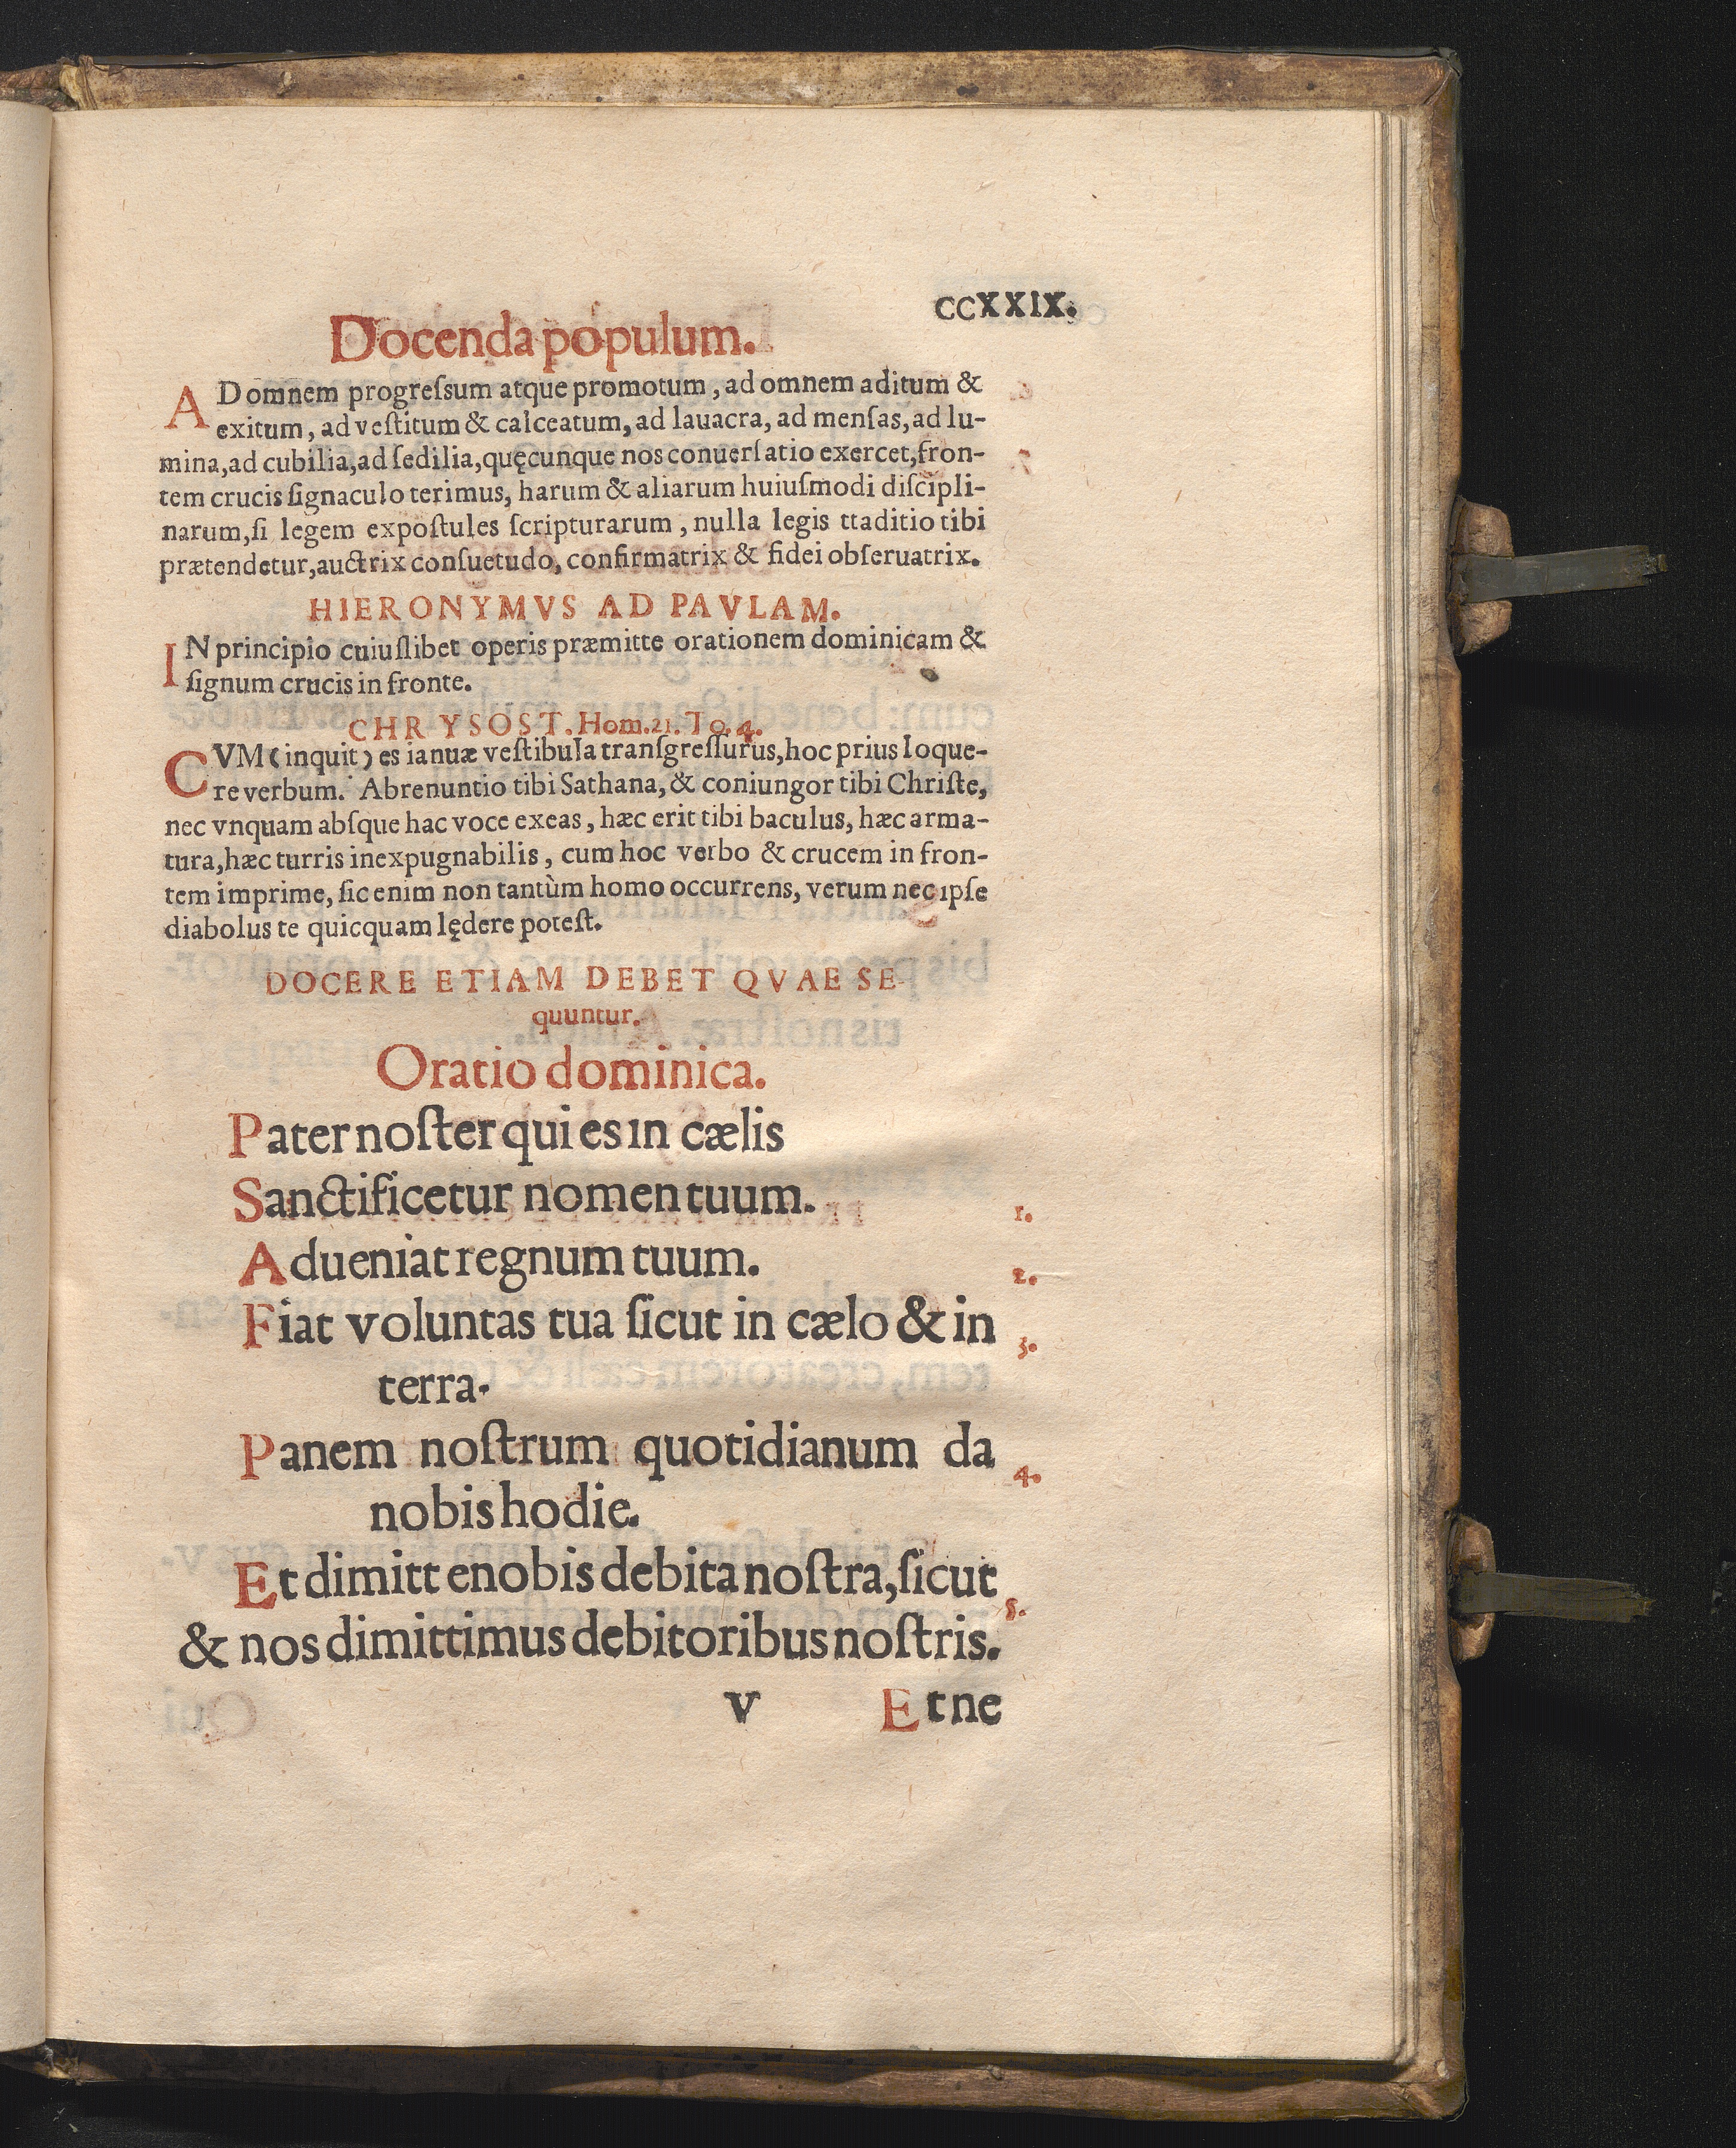 CCXXIX.
Docenda populum.
ADomnem progreſsum atque promotum, ad omnem aditum &
exitum, ad veſtitum & calceatum, ad lauacra, ad menſas, ad lu-
mina, ad cubilia, ad ſedilia, quęcunque nos conuerſatio exercet, fron-
tem crucis ſignaculo terimus, harum & aliarum huiuſmodi diſcipli-
narum, ſi legem expoſtules ſcripturarum, nulla legis ttaditio tibi
prætendetur, auctrix conſuetudo, confirmatrix & fidei obſeruatrix.
HIERONYMVS AD PAVLAM.
IN principio cuiuſlibet operis præmitte orationem dominicam &
ſignum crucis in fronte.
CHRYSOST. Hom. 21. To. 4.
CVM (inquit) es ianuæ veſtibula tranſgreſſurus, hoc prius loque-
re verbum. Abrenuntio tibi Sathana, & coniungor tibi Chriſte,
nec vnquam abſque hac voce exeas, hæc erit tibi baculus, hæc arma-
tura, hæc turris inexpugnabilis, cum hoc verbo & crucem in fron-
tem imprime, ſic enim non tantùm homo occurrens, verum nec ipſe
diabolus te quicquam lędere poteſt.
DOCERE ETIAM DEBET QVAE SE-
quuntur.
Oratio dominica.
Pater noſter qui es in cælis
Sanctificetur nomen tuum. 1.
Adueniat regnum tuum. 2.
Fiat voluntas tua ſicut in cælo & in 3.
terra.
Panem noſtrum quotidianum da 4.
nobis hodie.
Et dimitt enobis debita noſtra, ſicut 5.
& nos dimittimus debitoribus noſtris.
v Et ne